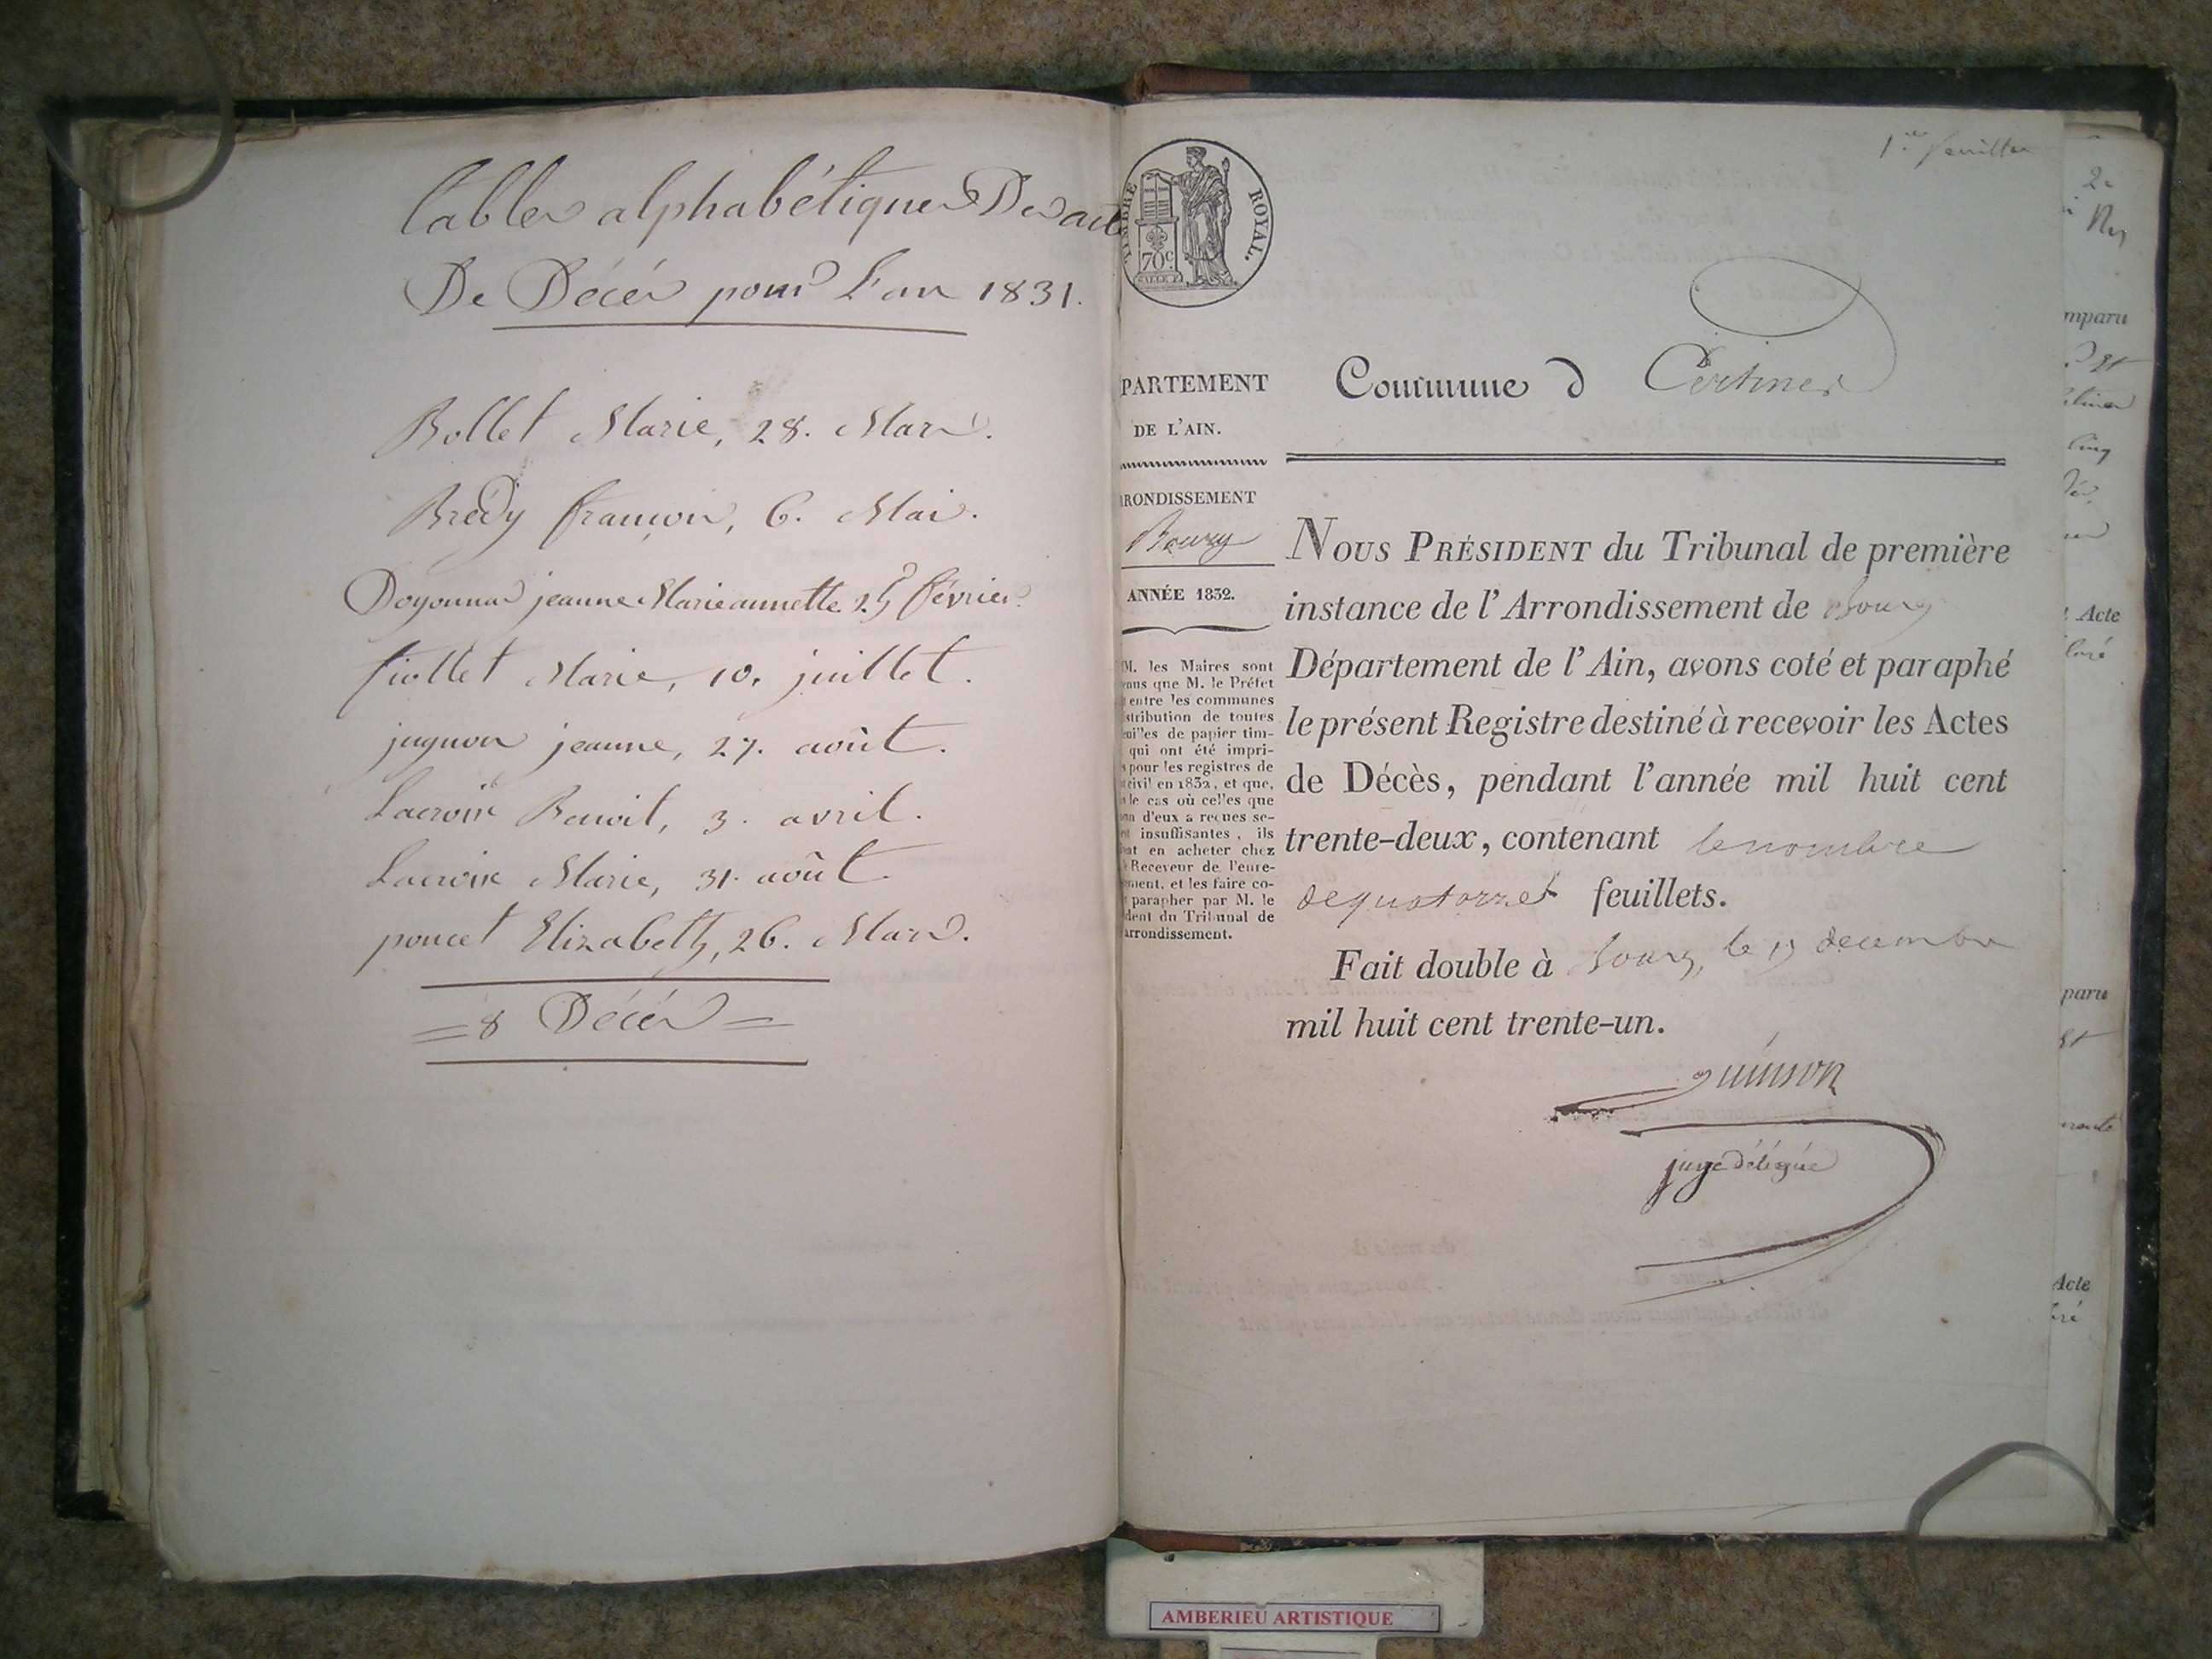 Tables alphabétiques Des acte
De Décés pour L'an 1831.
Bollet Marie, 28. Mars.
Brédy françois, 6. Mai.
Doyonnas jeanne Marie annette 25 février
fiollet Marie, 10. juillet.
jugnon jeanne, 27. août.
Lacroix Benoit, 3. avril.
Lacroix Marie, 31. août.
poncet Elizabeth, 26. Mars.
= 8 Décés =
1er feuillet
TIMBRE ROYAL.
70c
PARTEMENT
DE L'AIN.
RONDISSEMENT
Bourg
ANNÉE 1832.
M. les Maires sont
que M. le Préfet
entre les communes
stribution de toutes
de papier tim-
qui ont été impri-
pour les registres de
civil en 1832, et que,
le cas où celles que
d'eux a reçues se-
insuffisantes, ils
en acheter chez
Receveur de l'enre-
ment, et les faire co-
parapher par M. le
dent du Tribunal de
arrondissement.
Commune d Certines
NOUS PRÉSIDENT du Tribunal de première
instance de l'Arrondissement de Bourg
Département de l'Ain, avons coté et paraphé
le présent Registre destiné à recevoir les Actes
de Décès, pendant l'année mil huit cent
trente-deux, contenant le nombre
de quatorze feuillets.
Fait double à Bourg, le decembre
mil huit cent trente-un.
juge délégué
2e
mparu
Acte
paru
Acte
AMBERIEU ARTISTIQUE